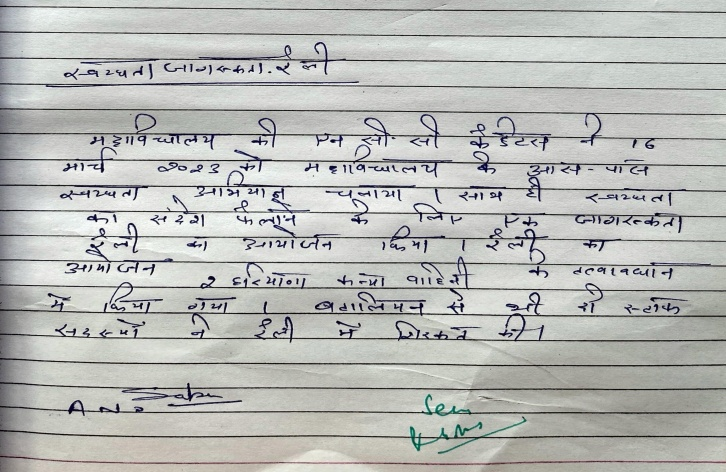 स्वच्छता जागरूकता रैली
महाविद्यालय की एन सी. सी कैडेटस ने 16
मार्च 2023 को महाविद्यालय के आस-पास
स्वच्छता अभियान चलाया । साथ ही स्वच्छता
का संदेश फैलाने के लिए एक जागरूकता
रैली का आयोजन किया । रैली का
आयोजन 2 हरियाणा कन्या वाहिनी के तत्वावधान
में किया गया । बटालियन से भी दो स्टाफ
सदस्यों ने रैली में शिरकत की।
A N O
Seen